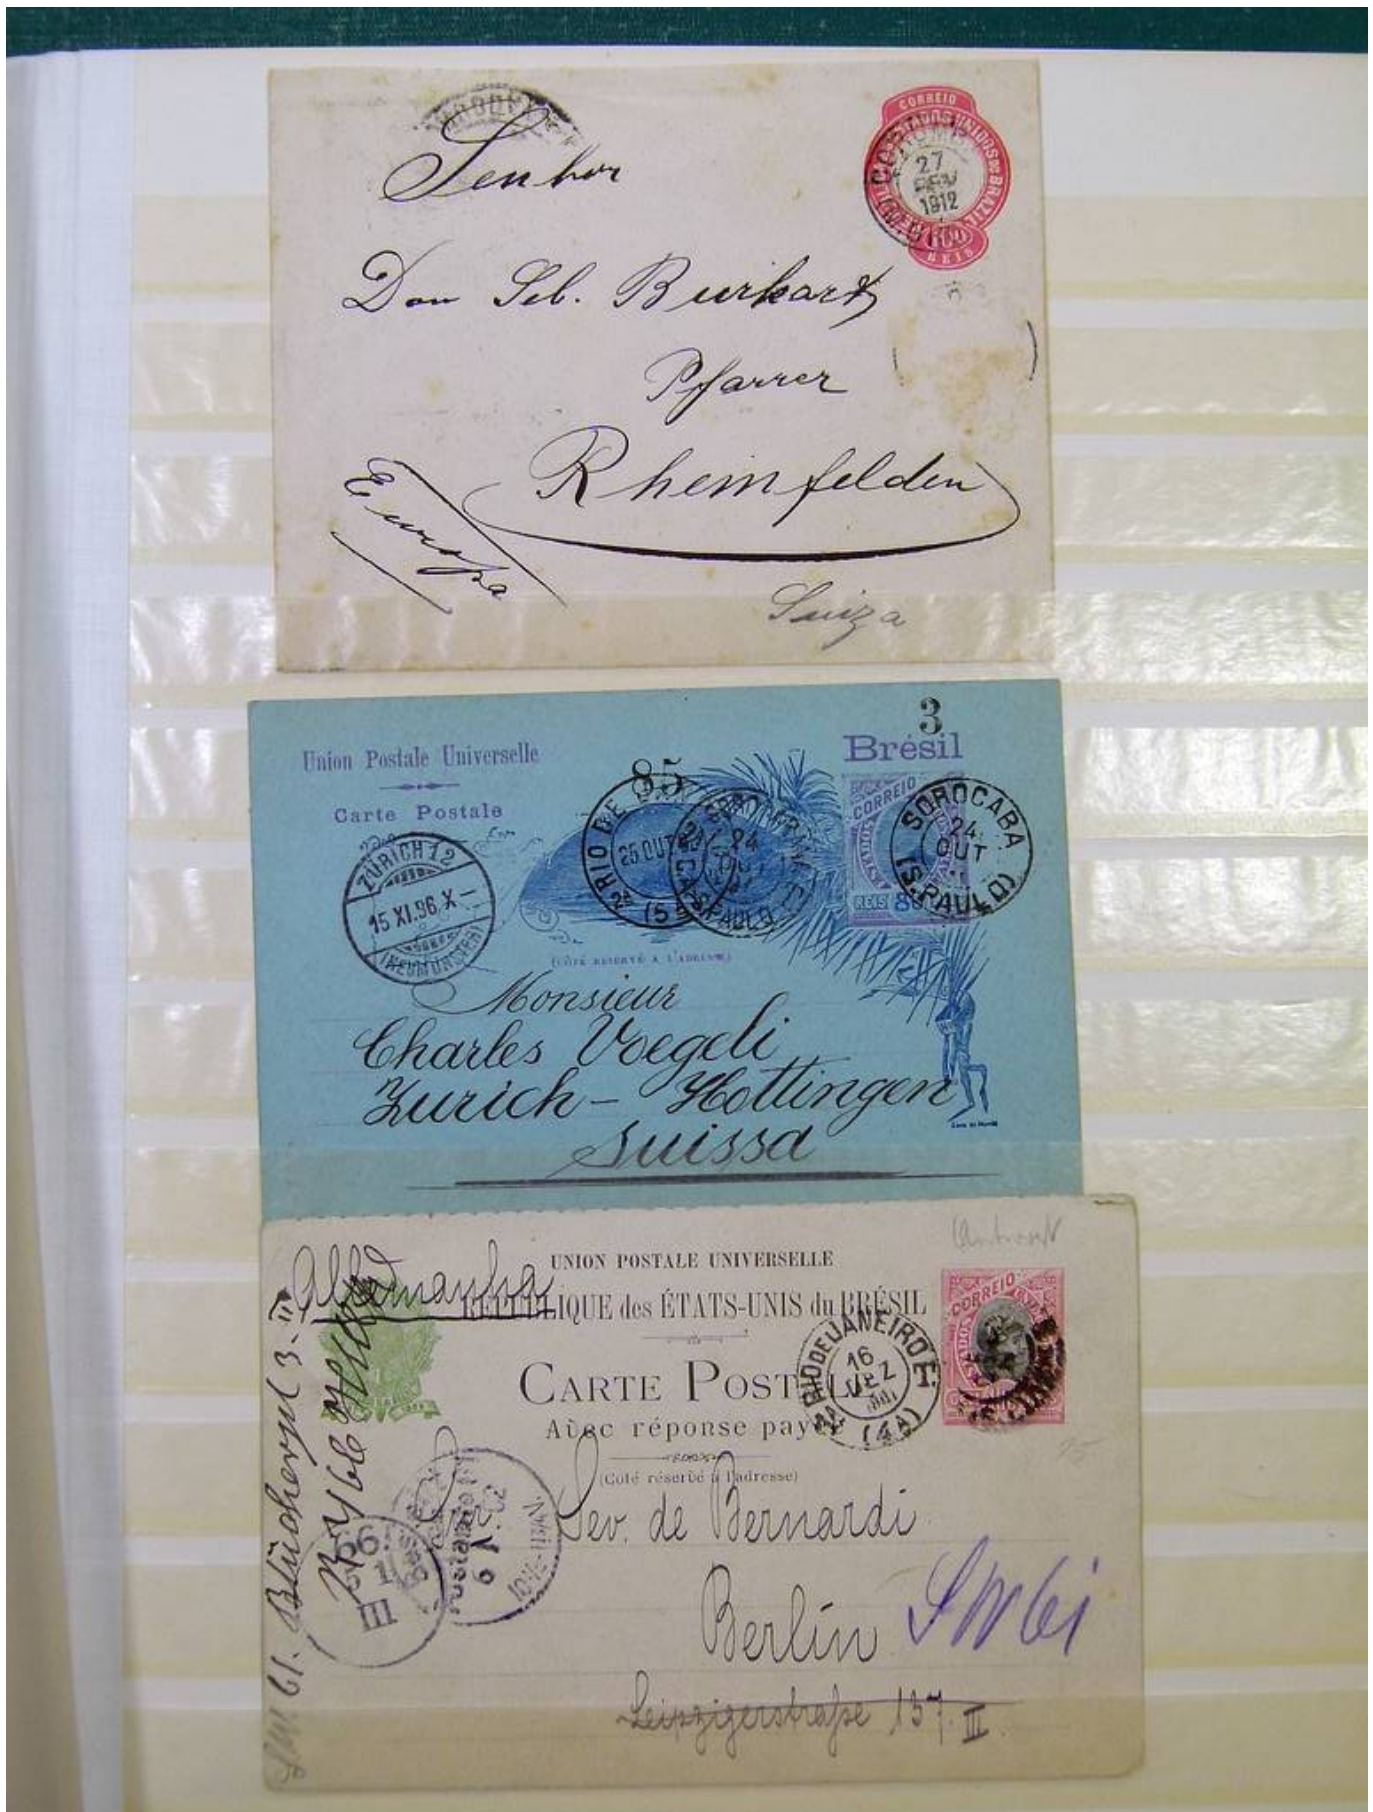 CORREIO
ESTADOS UNIDOS DO BRAZIL
27
FEV
1912
REIS
Senhor
Don Seb. Burkart
Pfarrer
Rheinfelden
Europa
Suiza
3
Union Postale Universelle
Brésil
85
Carte Postale
CORREIO
ZÜRICH 12
15 XI.96.X-
(NEUMÜNSTER)
RIO DE
25 OUT
24
S. PAULO
REIS 80
SOROCABA
24
OUT
(S. PAULO)
(CÔTÉ RÉSERVÉ À L'ADRESSE)
Monsieur
Charles Voegeli
Zurich - Hottingen
Suissa
UNION POSTALE UNIVERSELLE
Allemanha
RÉPUBLIQUE des ÉTATS-UNIS du BRÉSIL
CORREIO
CARTE POSTALE
Avec réponse payée
(Coté réservé à l'adresse)
RIO DE JANEIRO
16
DEZ
(4A)
T.
Sev. de Bernardi
Berlin
Leipzigerstraße 137 III
61. Blücherpl 3. III